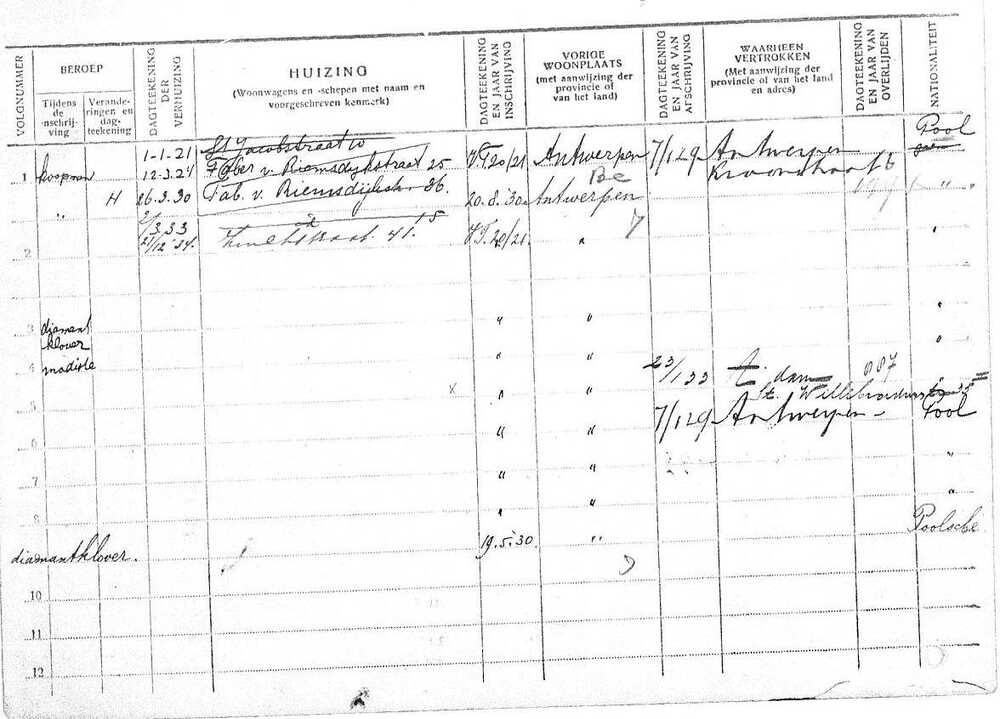 VOLGNUMMER
BEROEP
Tijdens de inschrijving
Veranderingen en dagteekening
DAGTEEKENING DER VERHUIZING
HUIZING
(Woonwagens en -schepen met naam en voorgeschreven kenmerk)
DAGTEEKENING EN JAAR VAN INSCHRIJVING
VORIGE WOONPLAATS
(met aanwijzing der provincie of van het land)
DAGTEEKENING EN JAAR VAN AFSCHRIJVING
WAARHEEN VERTROKKEN
(Met aanwijzing der provincie of van het land en adres)
DAGTEEKENING EN JAAR VAN OVERLIJDEN
NATIONALITEIT
1 koopman 1-1-21 St Jacobstraat 10 VT 20/21 Antwerpen 7/1 29 Antwerpen Pool
12-3-24 Faber v. Riemsdijkstraat 25 Be
H 26.3.30 Fab. v. Riemsdijkstr. 26. 20.8.'30 Antwerpen "
" 2/3.33 15
2 21/12 '34. 41. VT. 20/21 " "
3 diamant klover " " "
4 modiste " " "
5 x " " 23/1 33 A.dam 087 "
St. Willibrordusstr 35
6 " " 7/1 29 Antwerpen Pool
7 " " "
8 " " "
diamantklover. 19.5.'30. " Poolsche
10
11
12